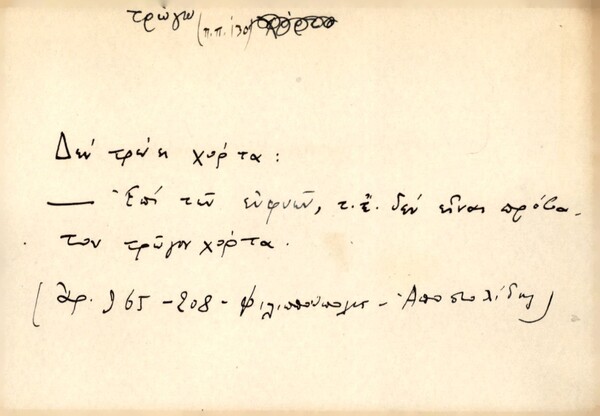 τρώγω (π.π. 130)
Δεν τρώει χόρτα:
— Ἐπί τῶν εὐφυῶν, τ.ἔ. δέν εἶναι πρόβα-
τον τρῶγον χόρτα.
(Ἀρ. 965 - 208 - Φιλιππούπολις - Ἀποστολίδης)